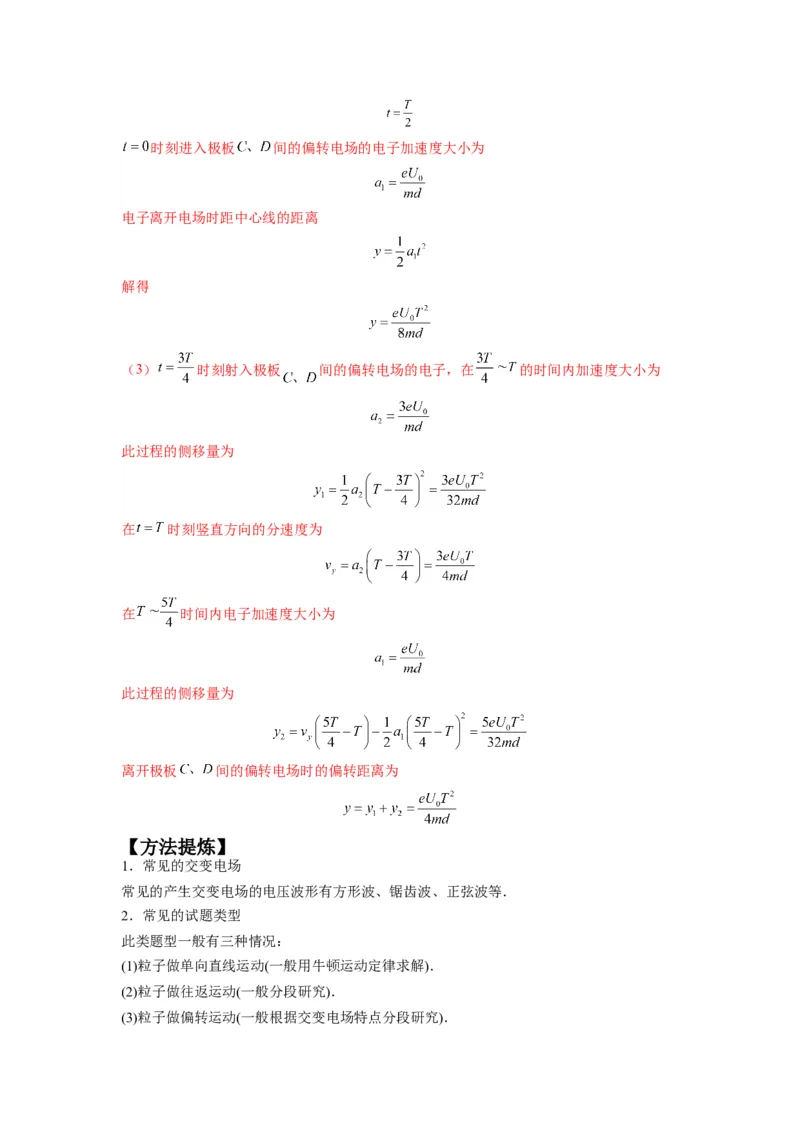 t = T/2
t = 0时刻进入极板C、D间的偏转电场的电子加速度大小为
a₁ = eU₀/md
电子离开电场时距中心线的距离
y = 1/2 a₁t²
解得
y = eU₀T²/8md
（3）t = 3T/4 时刻射入极板C、D间的偏转电场的电子，在 3T/4 ~ T 的时间内加速度大小为
a₂ = 3eU₀/md
此过程的侧移量为
y₁ = 1/2 a₂(T − 3T/4)² = 3eU₀T²/32md
在t = T 时刻竖直方向的分速度为
v_y = a₂(T − 3T/4) = 3eU₀T/4md
在T ~ 5T/4 时间内电子加速度大小为
a₁ = eU₀/md
此过程的侧移量为
y₂ = v_y(5T/4 − T) − 1/2 a₁(5T/4 − T)² = 5eU₀T²/32md
离开极板C、D间的偏转电场时的偏转距离为
y = y₁ + y₂ = eU₀T²/4md
【方法提炼】
1．常见的交变电场
常见的产生交变电场的电压波形有方形波、锯齿波、正弦波等．
2．常见的试题类型
此类题型一般有三种情况：
(1)粒子做单向直线运动(一般用牛顿运动定律求解)．
(2)粒子做往返运动(一般分段研究)．
(3)粒子做偏转运动(一般根据交变电场特点分段研究)．